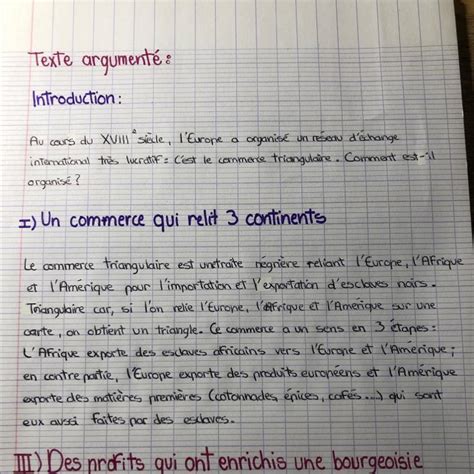 Texte argumenté :
Introduction :
Au cours du XVIIIe siècle, l'Europe a organisé un réseau d'échange
international très lucratif : c'est le commerce triangulaire. Comment est-il
organisé ?
I) Un commerce qui relit 3 continents
Le commerce triangulaire est unetraite négrière reliant l'Europe, l'Afrique
et l'Amérique pour l'importation et l'exportation d'esclaves noirs.
Triangulaire car, si l'on relie l'Europe, l'Afrique et l'Amérique sur une
carte, on obtient un triangle. Ce commerce a un sens en 3 étapes :
L'Afrique exporte des esclaves africains vers l'Europe et l'Amérique ;
en contre partie, l'Europe exporte des produits européens et l'Amérique
exporte des matières premières (cotonnades, épices, cafés ...) qui sont
eux aussi faites par des esclaves.
III) Des profits qui ont enrichis une bourgeoisie